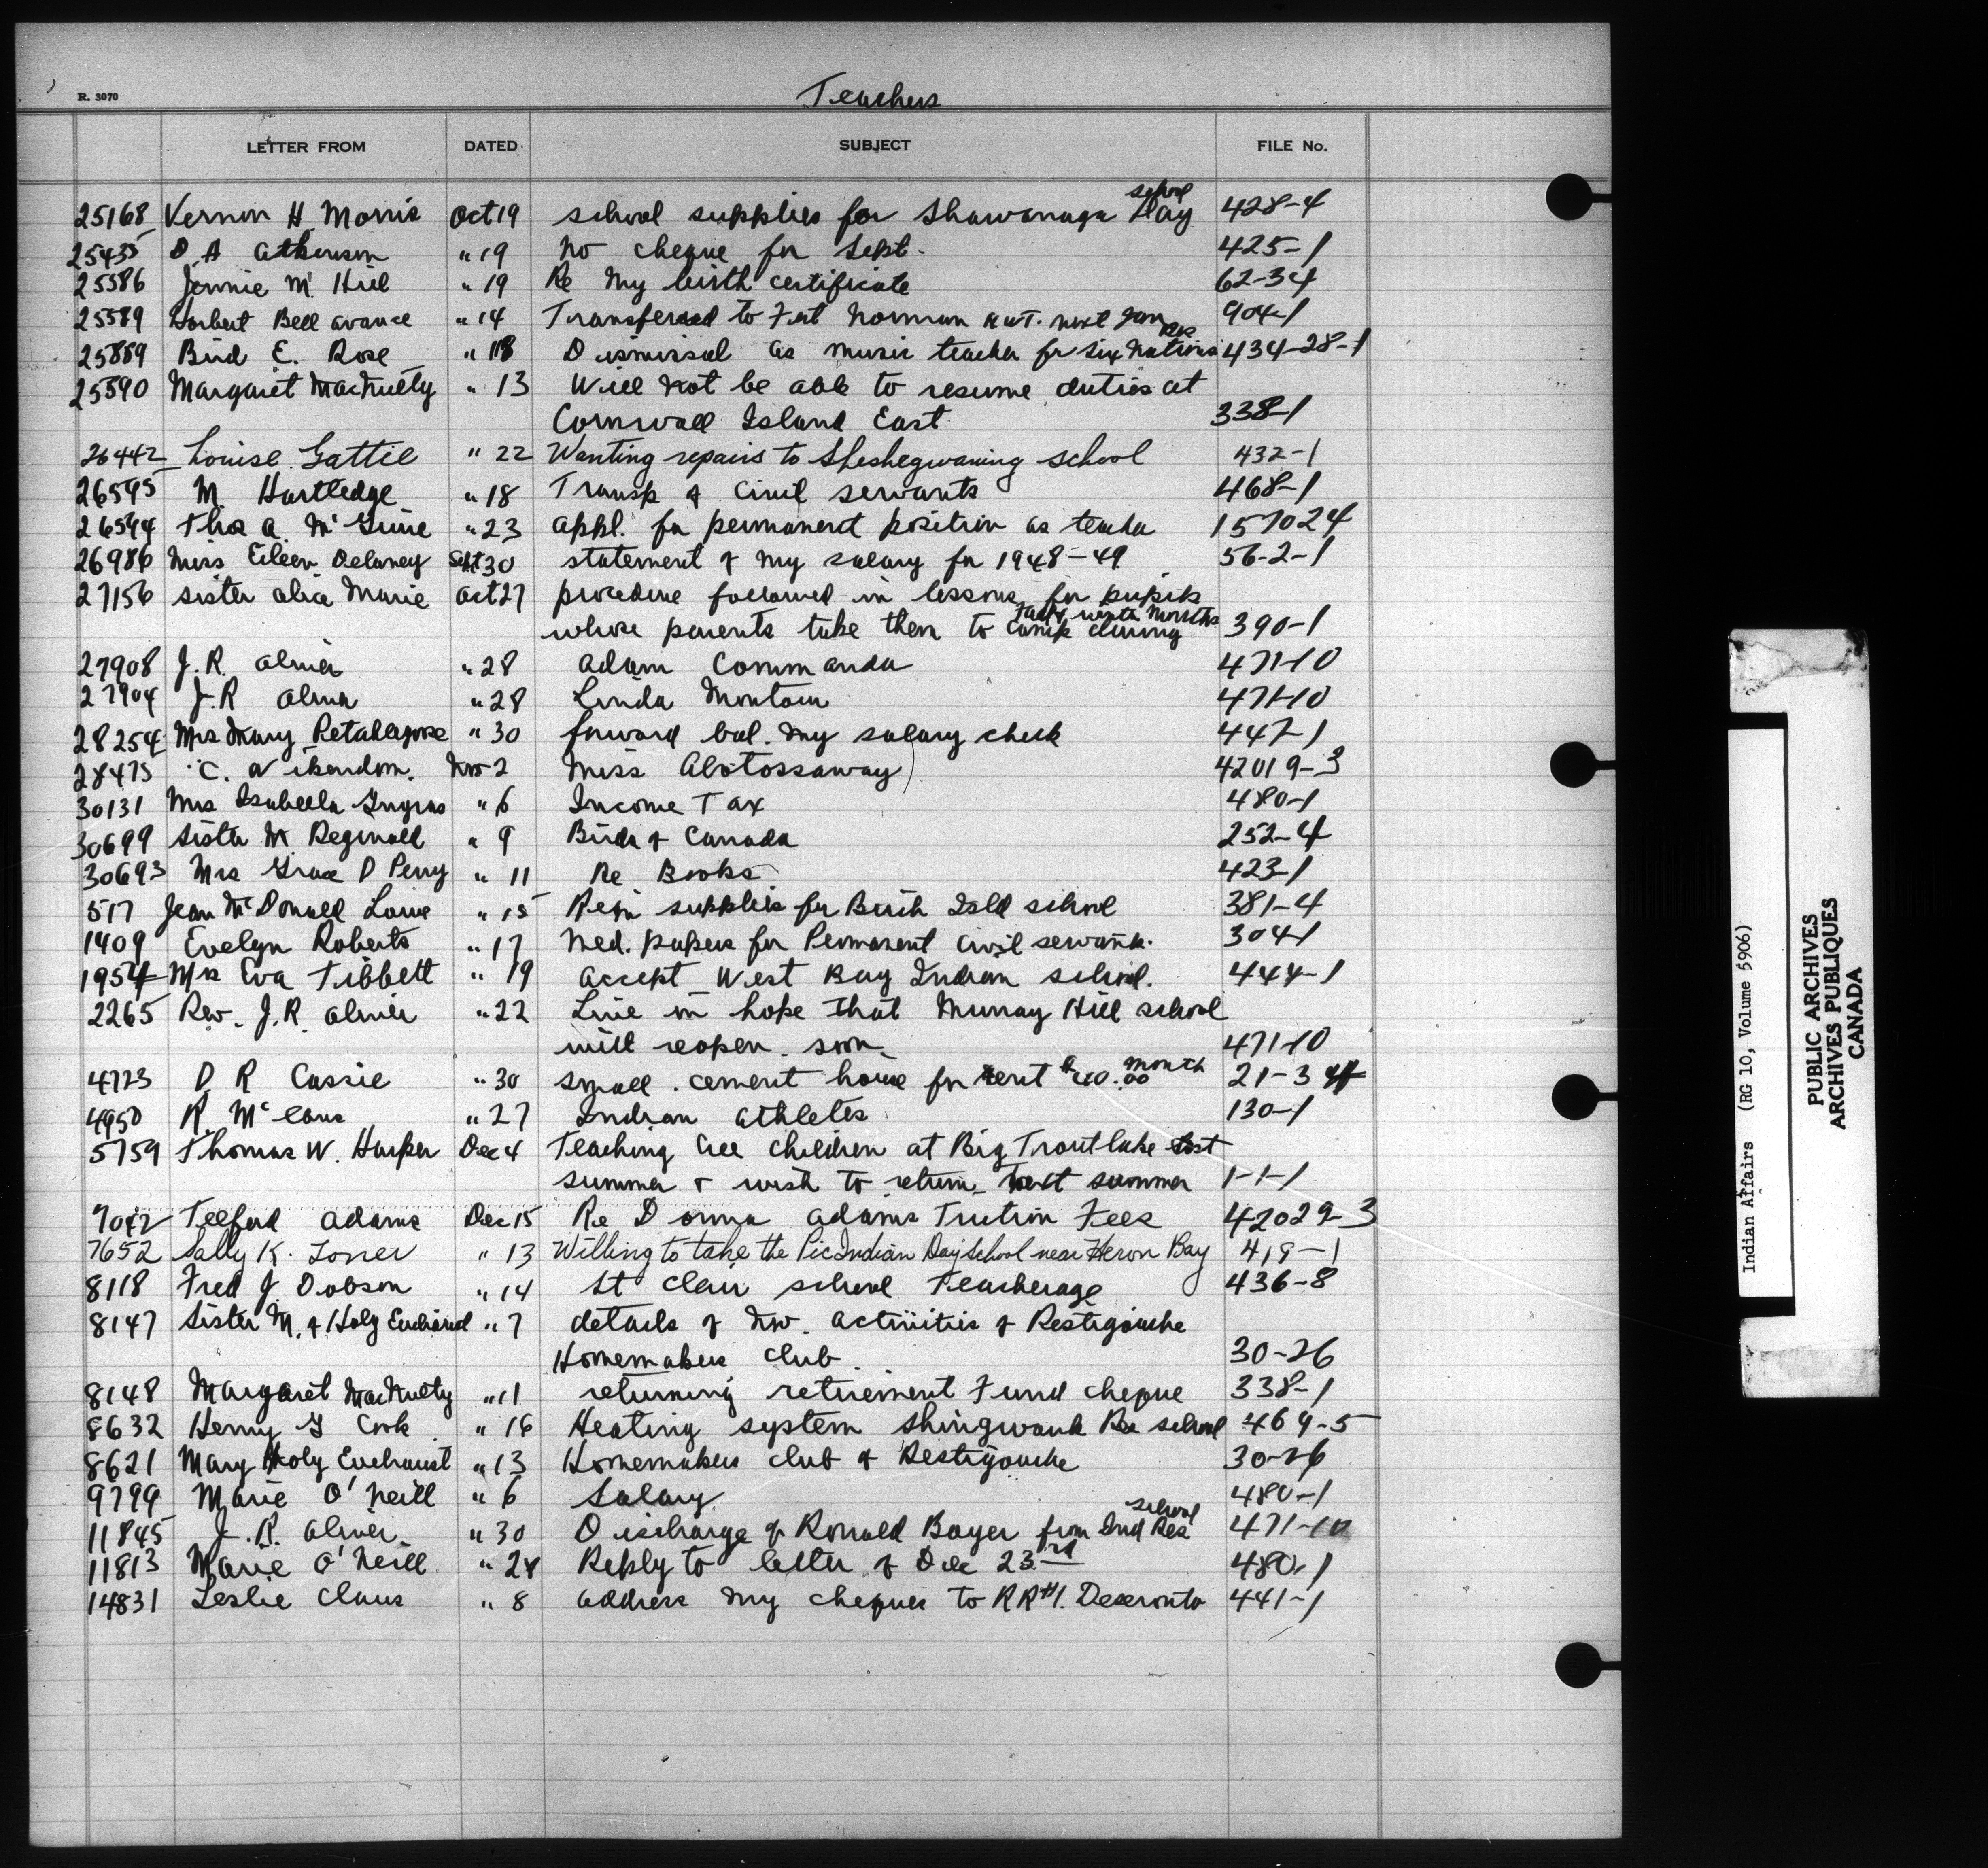 Teachers
R. 3070
LETTER FROM DATED SUBJECT FILE No.
25168 Vernon H Morris Oct 19 school supplies for Shawanaga Day school 428-4
25435 D A Atkinson " 19 No cheque for Sept. 425-1
25586 Jennie M. Hill " 19 Re My birth certificate 62-34
25589 Herbert Bell " 14 Transferred to Fort Norman N.W.T. next Jan 904-1
25889 Bird E. Rose " 18 Dismissal as music teacher for Six Nations Res 434-28-1
25590 Margaret MacNulty " 13 Will not be able to resume duties at
Cornwall Island East 338-1
26442 Louise Gattie " 22 Wanting repairs to Sheshegwaning school 432-1
26595 M Hartledge " 18 Transp of Civil servants 468-1
26594 Thos A. " 23 appl. for permanent position as teacher 157024
26986 Miss Eileen Delaney Sept 30 statement of my salary for 1948-49 56-2-1
27156 Sister Alice Marie Oct 27 procedure followed in lessons for pupils
whose parents take them to camp during winter months 390-1
27908 J.R. " 28 Adam Commanda 471-10
27904 J.R " 28 Linda 471-10
28254 Mrs Mary " 30 forward bal. my salary check 447-1
28475 C. Nov 2 Miss Abotossaway 42019-3
30131 Mrs Isabella Gingras " 6 Income Tax 480-1
30699 Sister M. Reginald " 9 Birds of Canada 252-4
30693 Mrs Grace D Perry " 11 Re Books 423-1
517 Jean McDonald " 15 supplies for Birch Isld school 381-4
1409 Evelyn Roberts " 17 Med. papers for Permanent Civil servants. 304-1
1954 Mrs Eva Tibbett " 19 accept West Bay Indian school. 444-1
2265 Rev. J.R. " 22 Live in hope that Murray Hill school
will reopen soon 471-10
4723 D R Cassie " 30 small cement house for rent $40.00 month 21-3
4950 R. " 27 Indian athletes 130-1
5759 Thomas W. Harper Dec 4 Teaching Cree children at Big Trout lake last
summer & wish to return next summer 1-1-1
7042 Telford Adams Dec 15 Re Donna Adams Tuition Fees 42029-3
7652 Sally K. " 13 Willing to take the Pic Indian Day School near Heron Bay 419-1
8118 Fred J. Dobson " 14 St Clair school Teacherage 436-8
8147 Sister M. of Holy Eucharist " 7 details of Nov. activities of Restigouche
Homemakers Club. 30-26
8148 Margaret MacNulty " 11 returning retirement Fund cheque 338-1
8632 Henry G Cook " 16 Heating system Shingwauk Res school 469-5
8621 Mary Holy Eucharist " 13 Homemakers Club of Restigouche 30-26
9799 Marie O'Neill " 6 Salary 480-1
11845 J.R. " 30 Discharge of Ronald Boyer from Ind Res school 471-10
11813 Marie O'Neill " 28 Reply to letter of Dec 23rd 480-1
14831 Leslie Claus " 8 address my cheques to RR#1. Deseronto 441-1
Indian Affairs (RG 10, Volume 5906)
PUBLIC ARCHIVES
ARCHIVES PUBLIQUES
CANADA